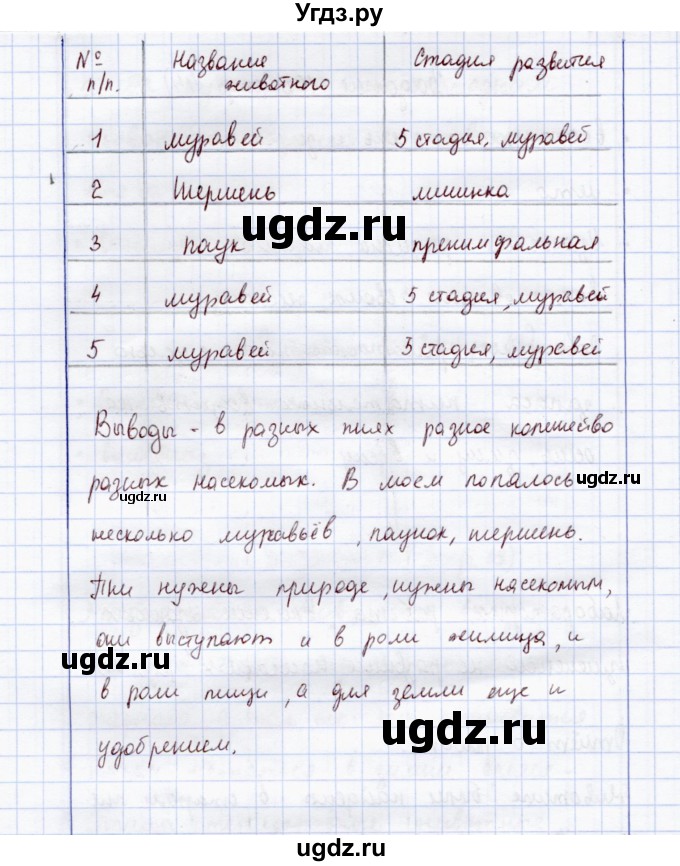 Угдз.ру
№ п/п. Название животного Стадия развития
1 муравей 5 стадия, муравей
2 Шершень личинка
ugdz.ru
3 паук пренимфальная
4 муравей 5 стадия, муравей
5 муравей 5 стадия, муравей
Выводы - в разных пнях разное количество
разных насекомых. В моем попалось
ugdz.ru ugdz.ru
несколько муравьёв, паучок, шершень.
Пни нужны природе, нужны насекомым,
они выступают и в роли жилища, и
ugdz.ru
в роли пищи, а для земли еще и
ugdz.ru
удобрением.
ugdz.ru